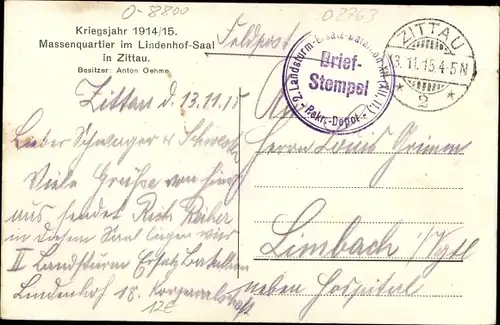 O-8800
02963
Kriegsjahr 1914/15.
Massenquartier im Lindenhof-Saal
in Zittau.
Besitzer: Anton Oehme.
Feldpost
2. Landsturm-Ersatz-Bataillon
Brief-
Stempel
Rekr.-Depot
ZITTAU
13.11.15.4-5N
* 2 *
Zittau d. 13.11.15
Lieber Schwager u. Schwester
Viele Grüße von hier
aus sendet Euch
in diesem Saal liegen wir
II Landsturm Ersatz Batallion
Lindenhof 18. Korporalschaft
12E
An
Herrn Louis Grimm
Limbach i/Vgtl
neben Hospital